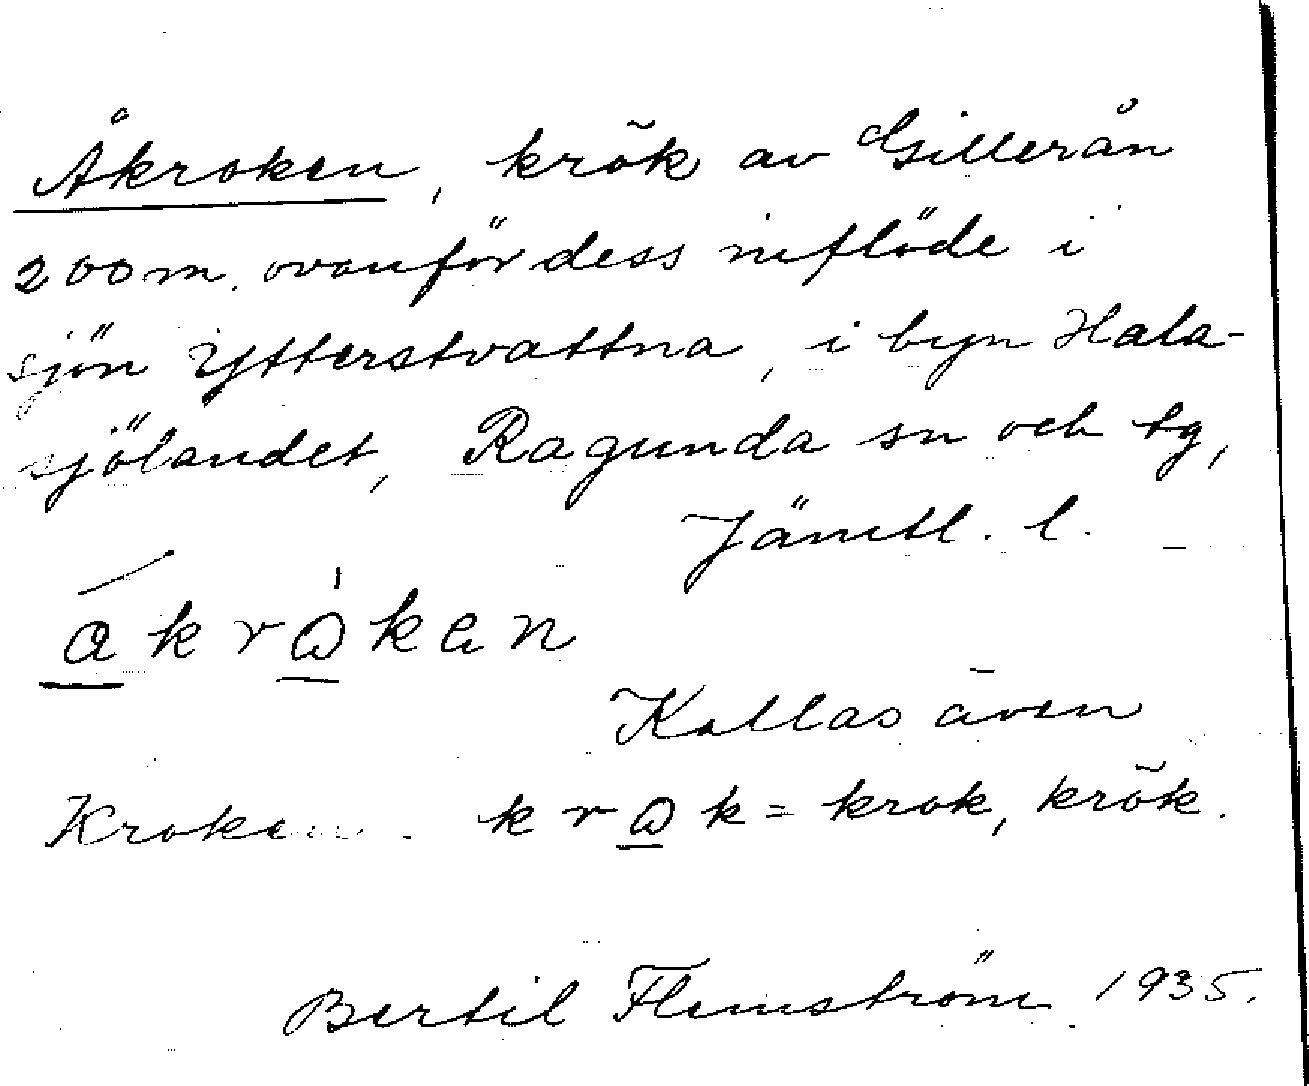 Åkroken, krök av Gillerån
200 m. ovanför dess inflöde i
sjön Ytterstvattna, i byn Hala-
sjölandet, Ragunda sn och tg,
Jämtl. l.
åkrωken
Kallas även
Kroken. krωk = krok, krök.
Bertil Flemström 1935.